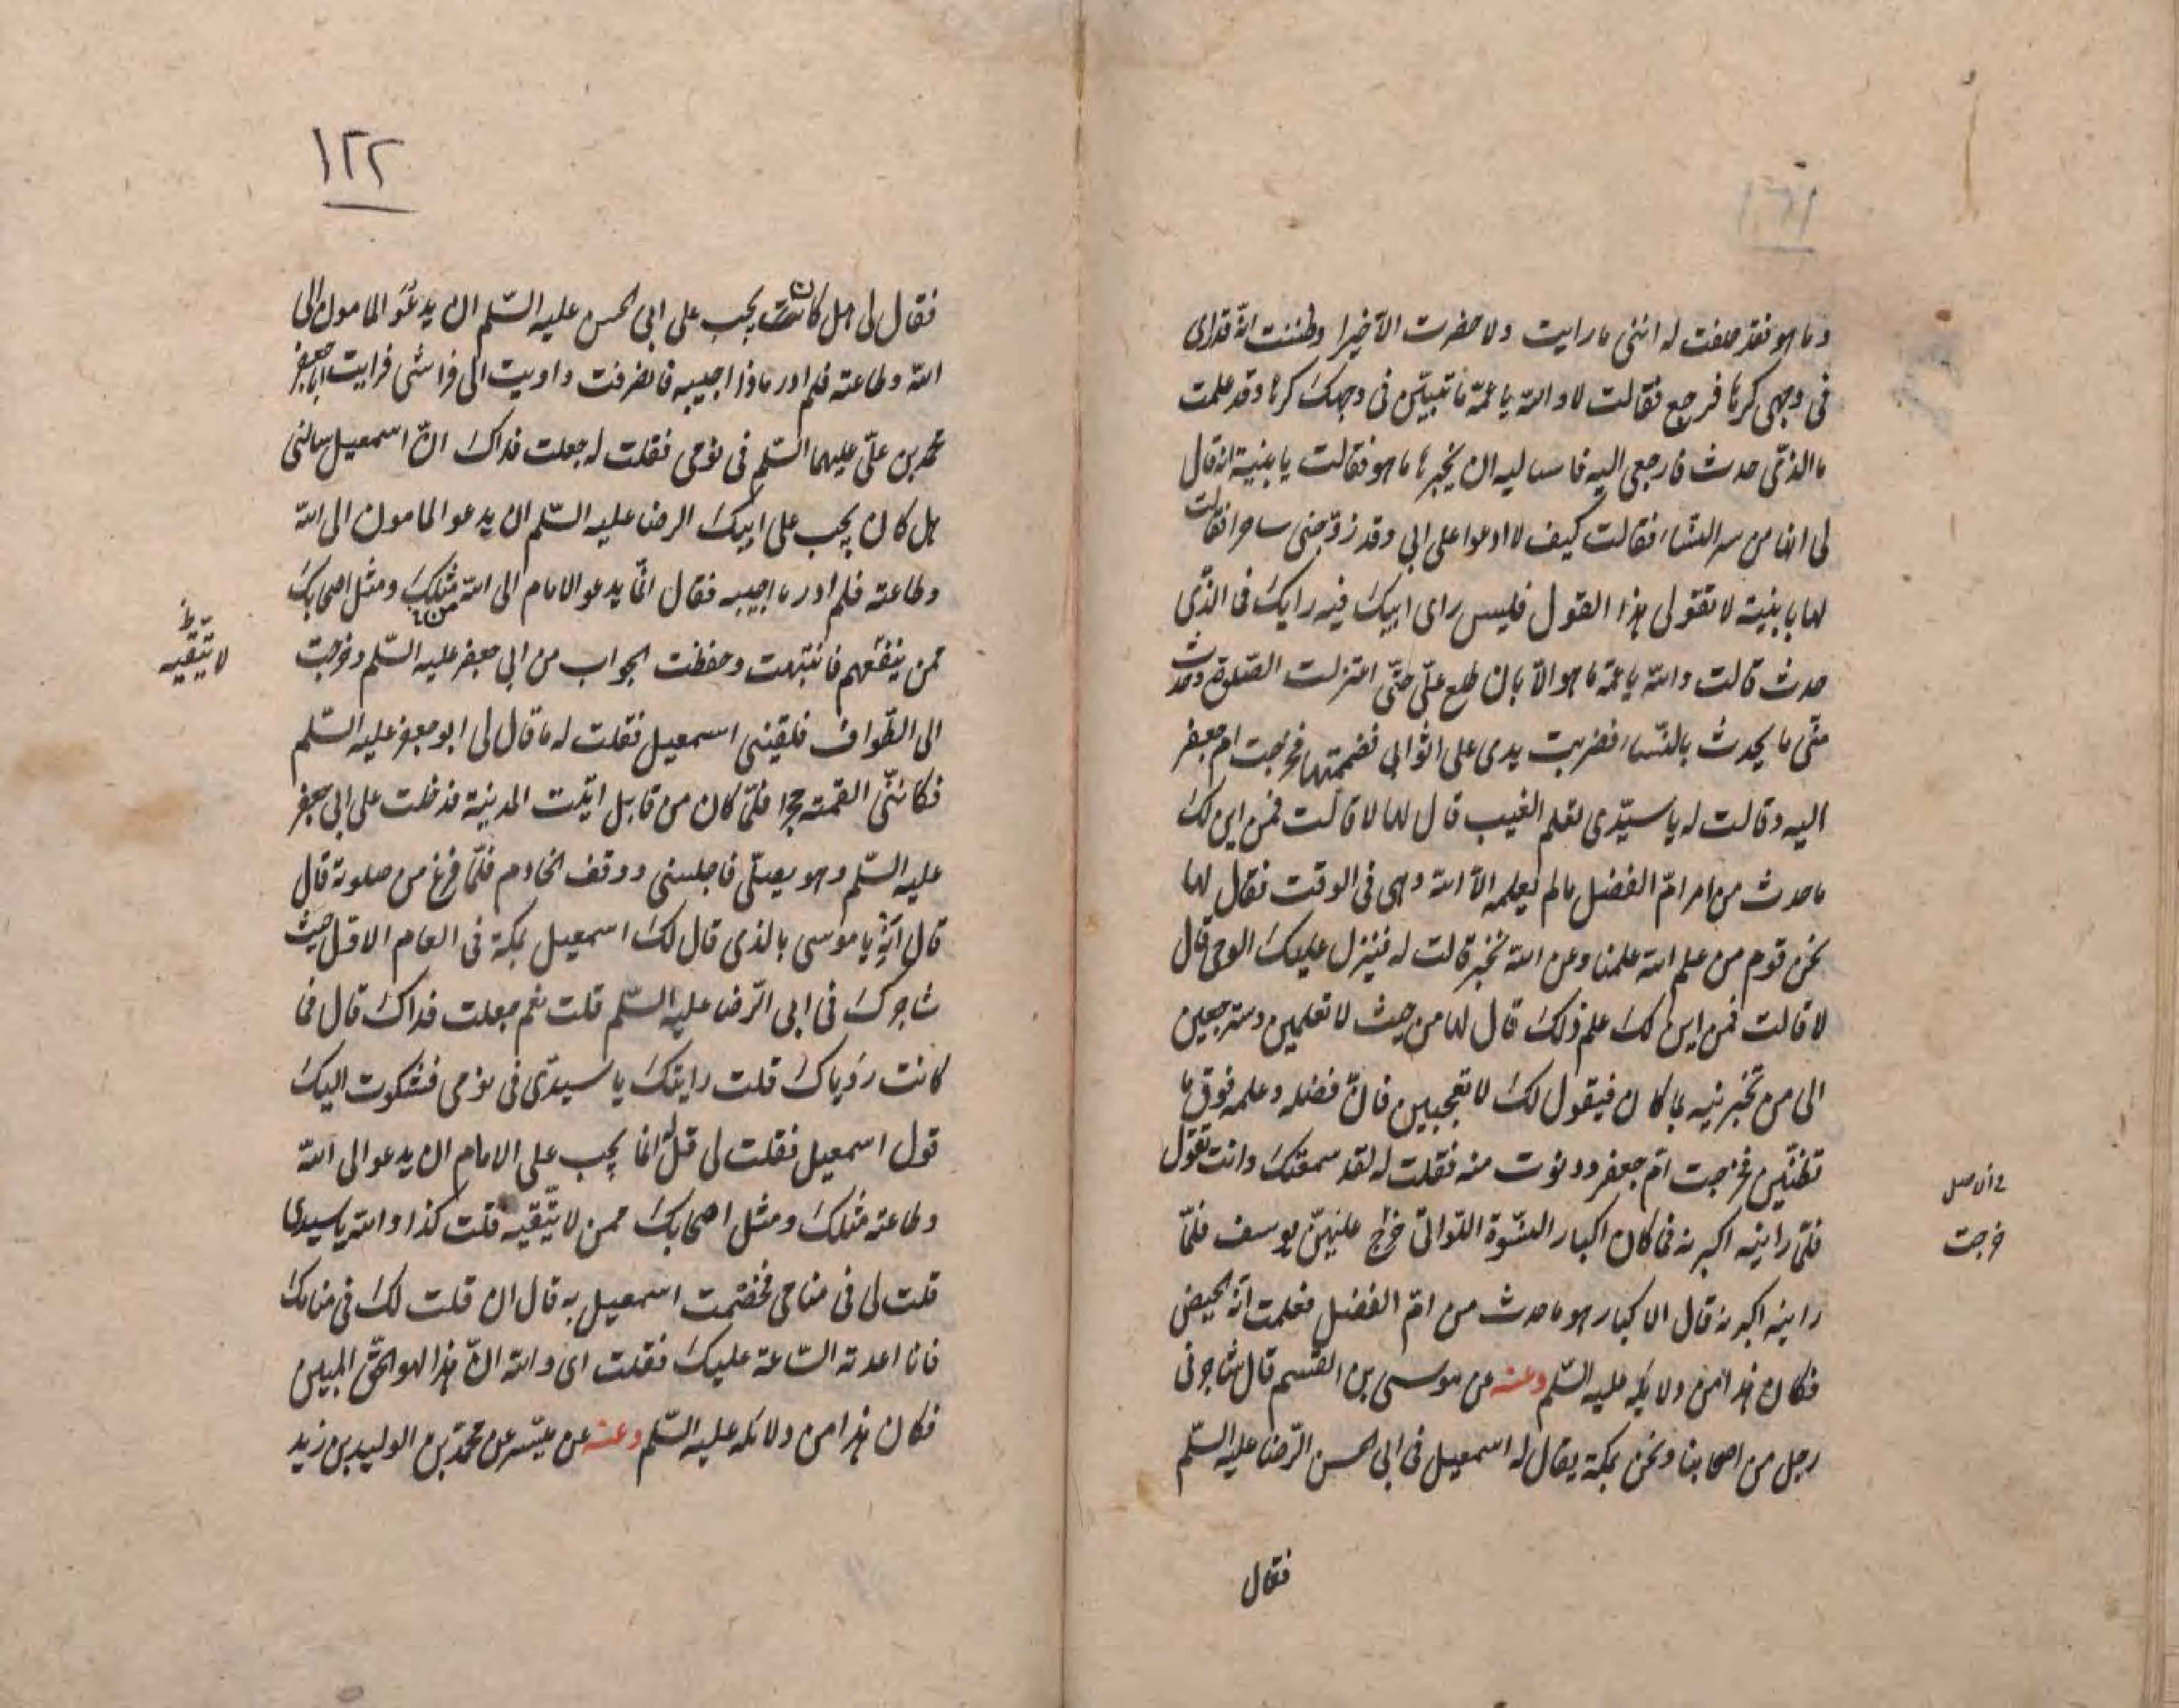 ١٢١
وما هو فقد حلفت له اننى ما رايت ولا حضرت الا خيرا وظننت انه قد راى
فى وجهى كرها فرجع فقالت لا والله يا عمة ما تبيّن فى وجهك كرها وقد علمت
ما الذى حدث فارجعى اليه فاساليه ان يخبرها ما هو فقالت يا بنية انه قال
لى انها من سر النساء فقالت كيف لا ادعوا على ابى وقد زوّجنى ساحرا فقالت
لها يا بنية لا تقولى هذا القول فليس راى ابيك فيه رايك فما الذى
حدث قالت والله يا عمة ما هو الا بان طلع علىّ حتى اعتزلت الصلوة وحدث
منّى ما يحدث بالنساء فضربت يدى على اثوابى فضممتها فخرجت ام جعفر
اليه وقالت له يا سيّدى تعلم الغيب قال لها لا قالت فمن اين لك
ما حدث من امر امّ الفضل ما لم يعلمه الا الله وهى فى الوقت فقال لها
نحن قوم من علم الله علمنا وعن الله نخبر قالت له فينزل عليك الوحى قال
لا قالت فمن اين لك علم ذلك قال لها من حيث لا تعلمين وسترجعين
الى من تخبرنيه بما كان فيقول لك لا تعجبين فانّ فضله وعلمه فوق ما
تظنّين فخرجت امّ جعفر ودنوت منه فقلت له لقد سمعتك وانت تقول
فلمّا راينه اكبرنه فما كان اكبار النسوة اللواتى خرج عليهنّ يوسف فلمّا
راينه اكبرنه قال الاكبار هو ما حدث من امّ الفضل فعلمت انّه الحيض
فكان هذا من دلايله عليه السّلم وعنه عن موسى بن القسم قال شاجرنى
رجل من اصحابنا ونحن بمكة يقال له اسمعيل فى ابى الحسن الرّضا عليه السّلم
فقال
خرجت
١٢٢
فقال لى هل كان يجب على ابى الحسن عليه السّلم ان يدعو المامون الى
الله وطاعته فلم ادر ماذا اجيبه فانصرفت واويت الى فراشى فرايت ابا جعفر
محمد بن علىّ عليهما السّلم فى نومى فقلت له جعلت فداك انّ اسمعيل سالنى
هل كان يجب على ابيك الرضا عليه السّلم ان يدعو المامون الى الله
وطاعته فلم ادر ما اجيبه فقال انّما يدعو الامام الى الله مثلك ومثل اصحابك
ممن ينفعهم فانتبهت وحفظت الجواب من ابى جعفر عليه السّلم وخرجت
الى الطّواف فلقينى اسمعيل فقلت له ما قال لى ابو جعفر عليه السّلم
فكاننّى القمته حجرا فلمّا كان من قابل اتيت المدينة فدخلت على ابى جعفر
عليه السّلم وهو يصلّى فاجلسنى ووقف الخادم فلمّا فرغ من صلوته قال
قال ايه يا موسى بالذى قال لك اسمعيل بمكة فى العام الاول حيث
شاجرك فى ابى الرّضا عليه السّلم قلت نعم جعلت فداك قال فما
كانت رؤياك قلت رايتك يا سيدى فى نومى فشكوت اليك
قول اسمعيل فقلت لى قل له انما يجب على الامام ان يدعو الى الله
وطاعته مثلك ومثل اصحابك ممن لا يتّقيه قلت كذا والله يا سيدى
قلت لى فى منامى فخصمت اسمعيل به قال ان قلت لك فى منامك
فانا اعدته السّاعة عليك فقلت اى والله انّ هذا لهو الحقّ المبين
فكان هذا من دلائله عليه السّلم وعنه عن ميسر عن محمّد بن الوليد بن زيد
لا يتّقيه